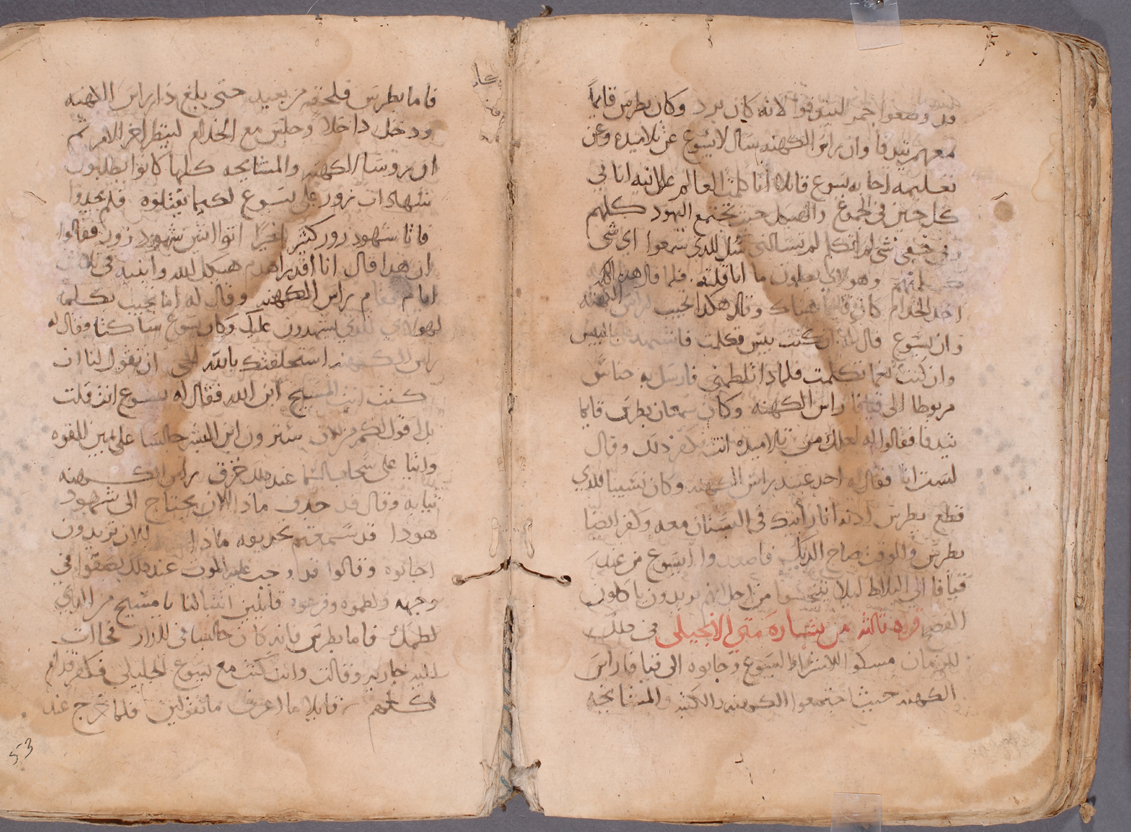 قد وضعوا جمر ليتوقوا لانه كان برد وكان بطرس قايما
معهم يتدفا وان راس الكهنه يسال لايسوع عن تلاميده وعن
تعليمه اجابه يسوع قايلا انا كلمت العالم علانيه انا في
كل حين في الجموع والهيكل حيث يجتمع اليهود كلهم
وفي خفي شي لم اتكلم لم تسالني سل للدي سمعوا اي شي
كلمتهم وهولاي يعلمون ما انا قلته فلما قال هدا
احد الخدام كان قايما هناك وقال هكدا تجيب لراس الكهنه
وان يسوع قال ان كنت بيس تكلمت فاشهد بالبيس
وان كنت نعما تكلمت فلمادا تلطمني فارسل به حناس
مربوطا الى قيافا راس الكهنه وكان سمعان بطرس قايما
يتدفا فقالوا له لعلك من تلاميده انت كفر دلك وقال
لست انا فقال احد عبيد راس الكهنه وكان نسيبا للدي
قطع بطرس ادنه انا رايتك في البستان معه وكفر ايضا
بطرس والوقت صاح الديك فاصعدوا ايسوع من عند
قيافا الى البلاط ليلا يتنجسوا من اجل انهم يريدون ياكلون
الفصح قراه تالته من بشارة متى الانجيلي في دلك
الزمان مسكوا الاشراط ليسوع وجابوه الى قيافا راس
الكهنه حيث اجتمعوا الكهنه والكتبه والمشايخه
فاما بطرس فلحقه من بعيد حتى بلغ دار راس الكهنه
ودخل داخلا وجلس مع الخدام لينظر اخر الامر ثم
ان روسا الكهنه والمشايخه كلها كانوا يطلبون
شهادات زور على يسوع لكيما يقتلوه فلم يجدوا
فاتا شهود زور كثير اخيرا اتوا اثنين شهود زور فقالوا
ان هدا قال انا اقدر اهدم هيكل الله وابنيه في ثلاث
ايام فقام راس الكهنه وقال له اما تجيب بكلمة
لهولاي الدي يشهدون عليك وكان يسوع ساكتا وقال له
راس الكهنه استحلفتك بالله الحي ان تقول لنا ان
كنت انت المسيح ابن الله فقال له يسوع انت قلت
بل اقول لكم من الان سترون ابن البشر جالسا على يمين القوه
واتيا على سحاب السما عند دلك خرق راس الكهنه
ثيابه وقال قد جدف مادا الان يحتاج الى شهود
هودا قد سمعتم تجديفه مادا الان تريدون
اجابوه وقالوا قد وجب عليه الموت عند دلك بصقوا في
وجهه ولطموه وفرعوه قايلين اتنبا لنا يا مسيح من الدي
لطمك فاما بطرس فانه كان جالسا في الدار فجاات
اليه جاريه وقالت وانت كنت مع يسوع الجليلي فكفر قدام
كلهم قايلا ما اعرف ما تقولين فلما خرج عند
53